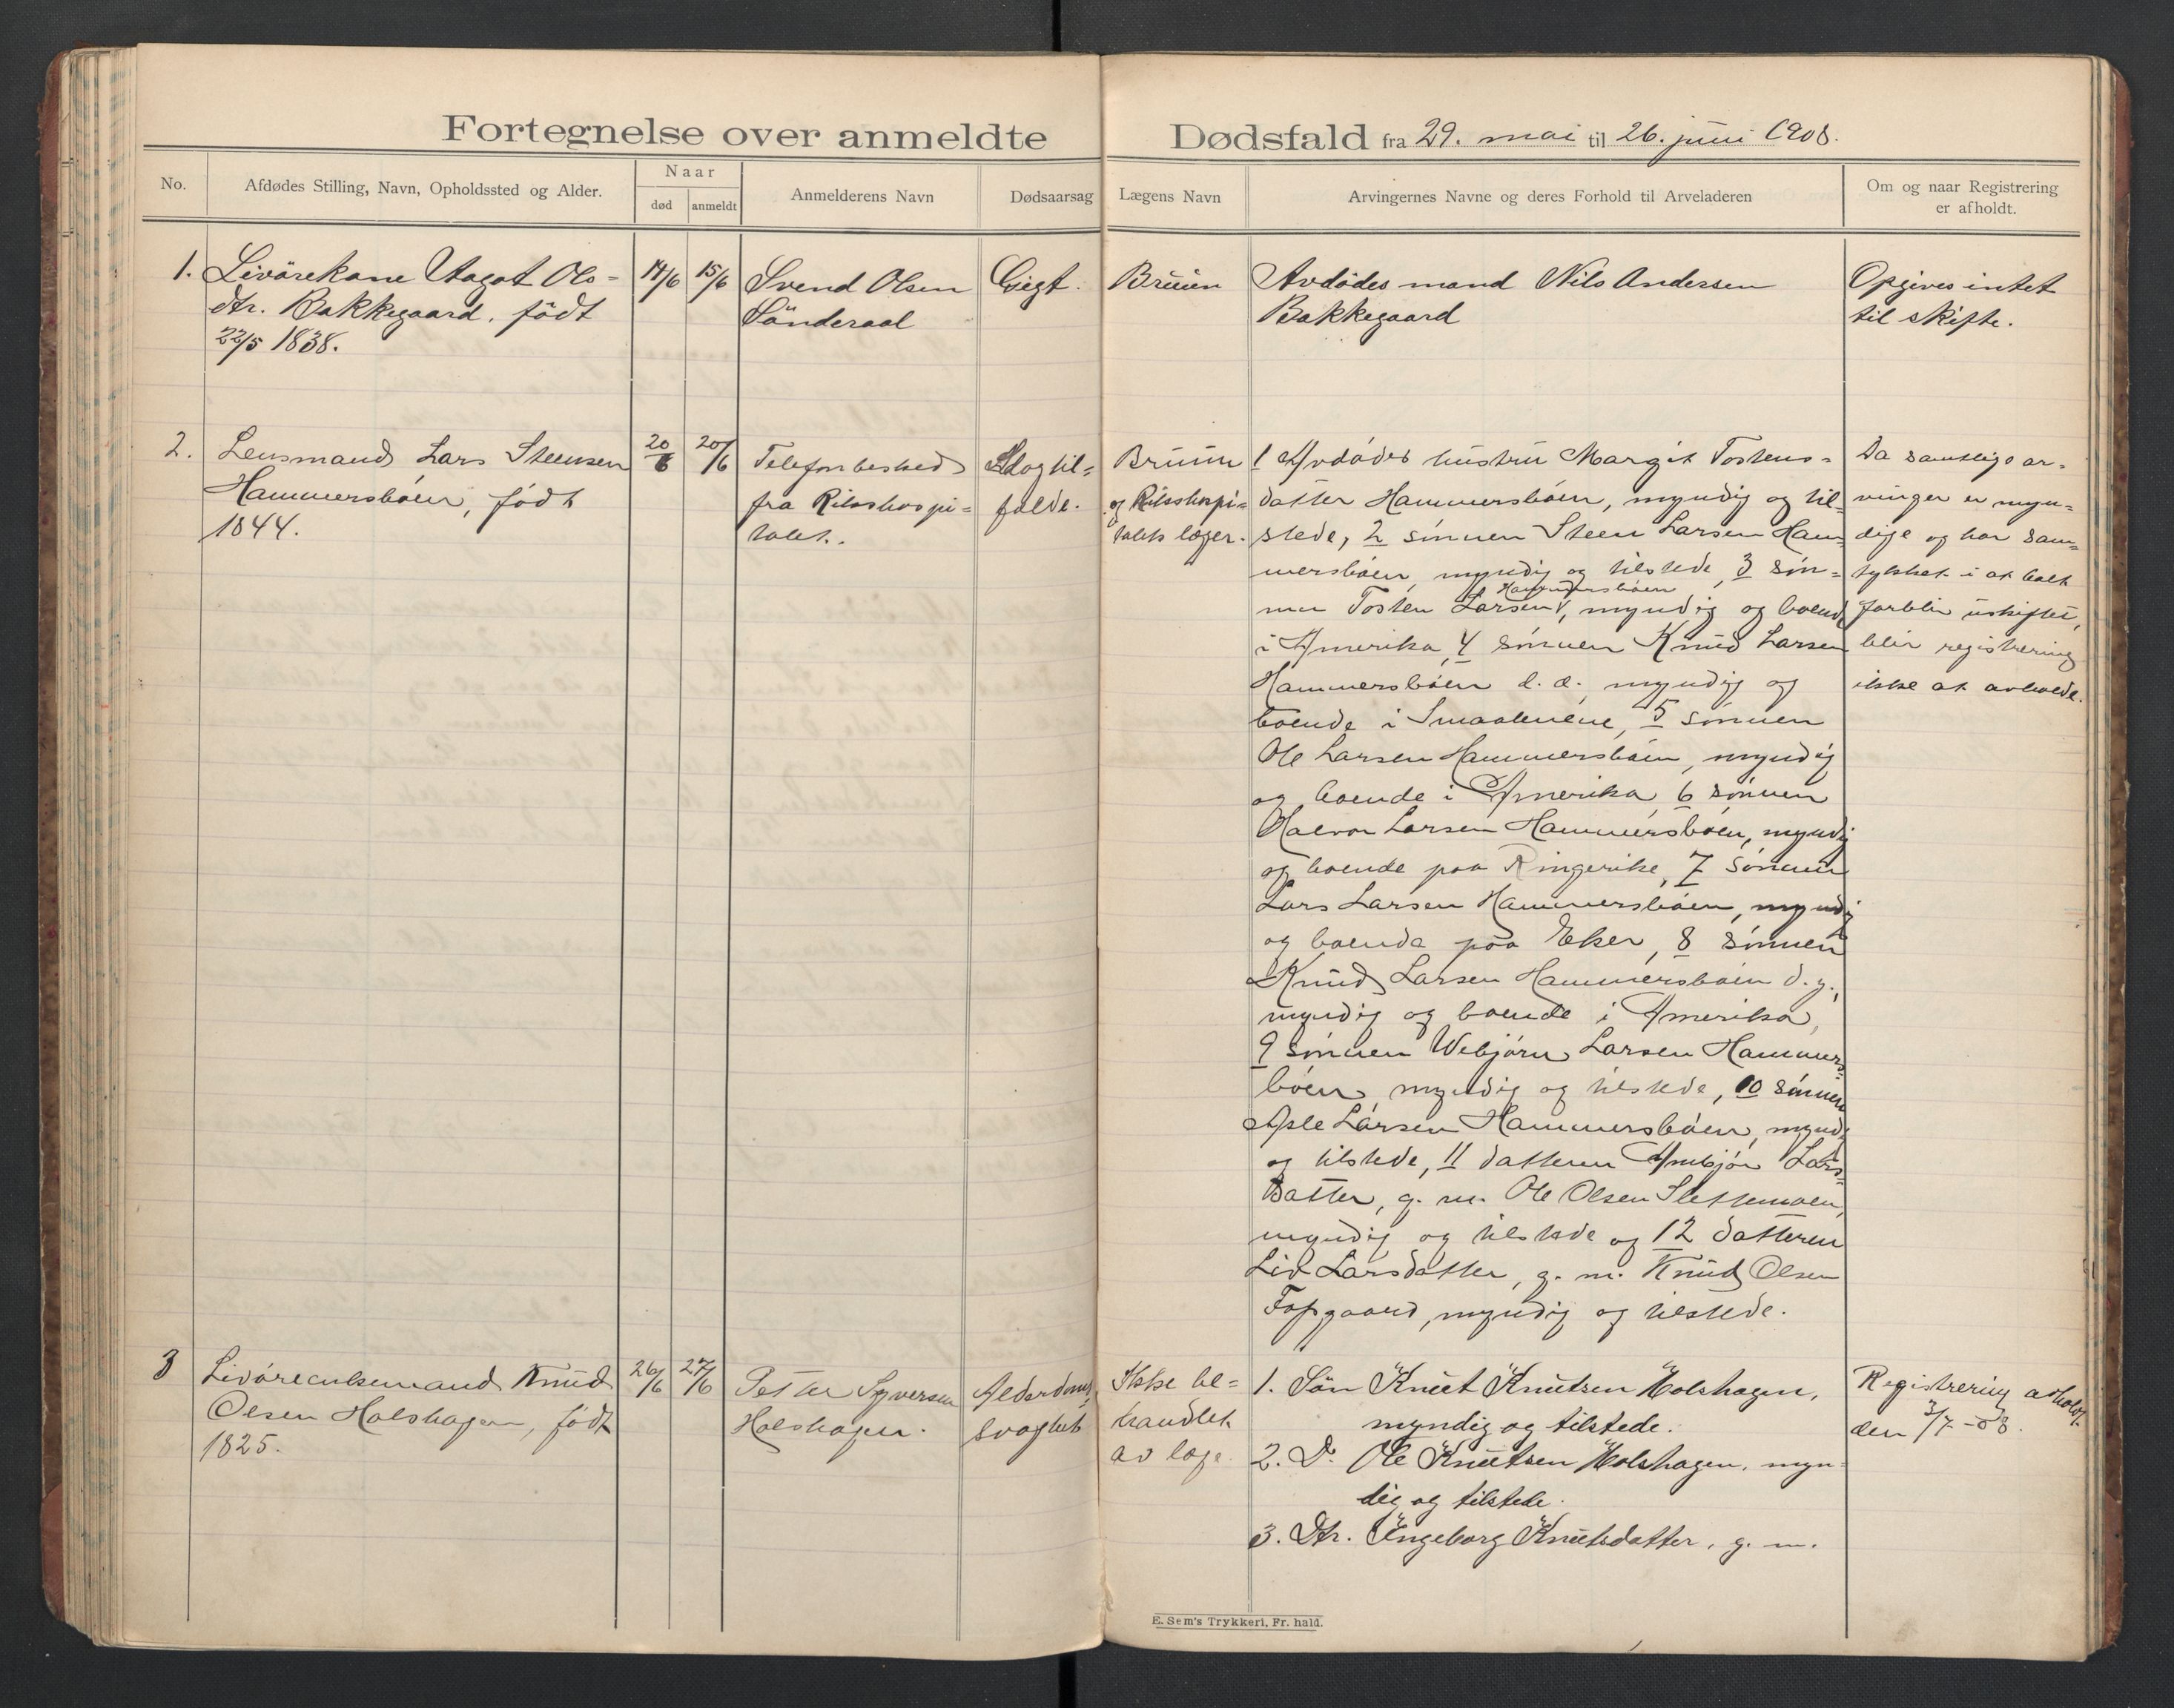 Fortegnelse over anmeldte Dødsfald fra 29. mai til 26. juni 1908.
No.
Afdødes Stilling, Navn, Opholdssted og Alder.
Naar
død
anmeldt
Anmelderens Navn
Dødsaarsag
Lægens Navn
Arvingernes Navne og deres Forhold til Arveladeren
Om og naar Registrering
er afholdt.
1.
Livörekone Aagot Ols-
dtr. Bakkegaard, födt
22/5 1838.
14/6
15/6
Svend Olsen
Sönderaal
Gigt.
Bruun
Avdödes mand Nils Andersen
Bakkegaard
Opgives intet
til skifte.
2.
Lensmand Lars Steensen
Hammersböen, födt
1844.
20/6
20/6
Telefonbesked
fra Rikshospi=
talet.
Slagtil=
fælde.
Bruun
og Rikshospi=
talets læger.
1 Avdödes hustru Margit Tostens=
datter Hammersböen, myndig og til=
stede, 2 sönnen Steen Larsen Ham=
mersböen, myndig og tilstede, 3 sön=
nen Tosten Larsen Hammersböen, myndig og boende
i Amerika, 4 sönnen Knud Larsen
Hammersböen d. æ. myndig og
boende i Smaalenene, 5 sönnen
Ole Larsen Hammersböen, myndig
og boende i Amerika, 6 sönnen
Halvor Larsen Hammersböen, myndig
og boende paa Ringerike, 7 sönnen
Lars Larsen Hammersböen, myndig
og boende paa Eker, 8 sönnen
Knud Larsen Hammersböen d. y.,
myndig og boende i Amerika,
9 sönnen Webjörn Larsen Hammers=
böen, myndig og tilstede, 10 sönnen
Asle Larsen Hammersböen, myndig
og tilstede, 11 datteren Ambjör Lars=
datter, g. m. Ole Olsen Slettemoen,
myndig og tilstede og 12 datteren
Liv Larsdatter, g. m. Knud Olsen
myndig og tilstede.
Da samtlige ar=
vinger er myn=
dige og har sam=
tykket i at boet
forblir uskiftet,
blir registrering
ikke at avholde.
3
Livöreenkemand Knud
Olsen Holshagen, födt
1825.
26/6
27/6
Petter Syversen
Holshagen.
Alderdoms=
svaghet
Ikke be=
handlet
av læge.
1. Sön Knut Knutsen Holshagen,
myndig og tilstede.
2. D. Ole Knutsen Holshagen, myn-
dig og tilstede.
3. Dtr. Ingeborg Knutsdatter, g. m.
Registrering avholdt
den 3/7-08.
E. Sem's Trykkeri, Fr. hald.